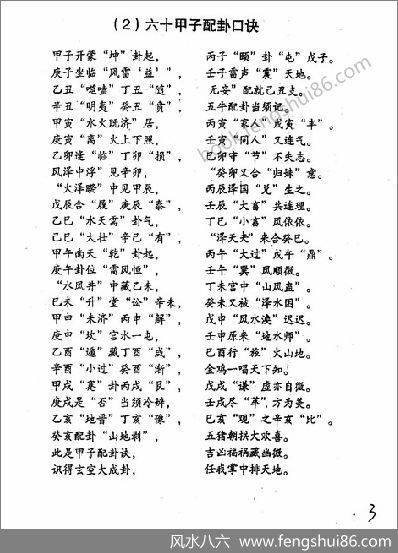 (2)六十甲子配卦口诀
甲子开蒙“坤”卦起, 丙子“颐”卦“屯”戊子。
庚子坐临“风雷‘益’”, 壬子雷声“震”天地。
乙丑“噬嗑”丁丑“随”, “无妄”配就己丑支。
辛丑“明夷”癸丑“贲”, 五牛配卦当须记。
甲寅“水火既济”居, 丙寅“家人”戊寅“丰”。
庚寅“离”火上下照, 壬寅“同人”又连气。
乙卯逢“临”丁卯“损”, 己卯守“节”不失志。
风泽中“浮”见辛卯, “癸卯又合“归妹”意。
“火泽睽”中见甲辰, 丙辰泽国“兑”生之。
戊辰合“履”庚辰“泰”, 壬辰“大畜”共连理。
乙巳“水天需”卦气, 丁巳“小畜”风依依。
己巳“大壮”辛巳“有”, “泽天夬”来合癸巳。
甲午南天“乾”卦起, 丙午“大过”戊午“鼎”。
庚午卦位“雷风恒”, 壬午“巽”风顺微。
“水风井”中藏乙未, 丁未宫中“山风蛊”。
己未“升”堂“讼”辛未, 癸未又被“泽水困”。
甲申“未济”丙申“解”, 戊申“风水涣”迟迟。
庚申“坎”宫水一屯, 壬申原来“地水师”。
乙酉“遁”藏丁酉“咸”, 己酉行“旅”火山地。
辛酉“小过”癸酉“渐”, 金鸡一唱天下知。
甲戌“蹇”卦丙戌“艮”, 戊戌“谦”虚亦自微。
庚戌是“否”当须冷碎, 壬戌尽“萃”方为美。
乙亥“地晋”丁亥“豫”, 己亥“观”之辛亥“比”。
癸亥配卦“山地剥”, 五猪朝拱大欢喜。
此是甲子配卦诀, 吉凶祸福藏幽微。
识得玄空大成卦, 任我掌中排天地。
3
book.fengshui86.com
风水八六 www.fengshui86.com